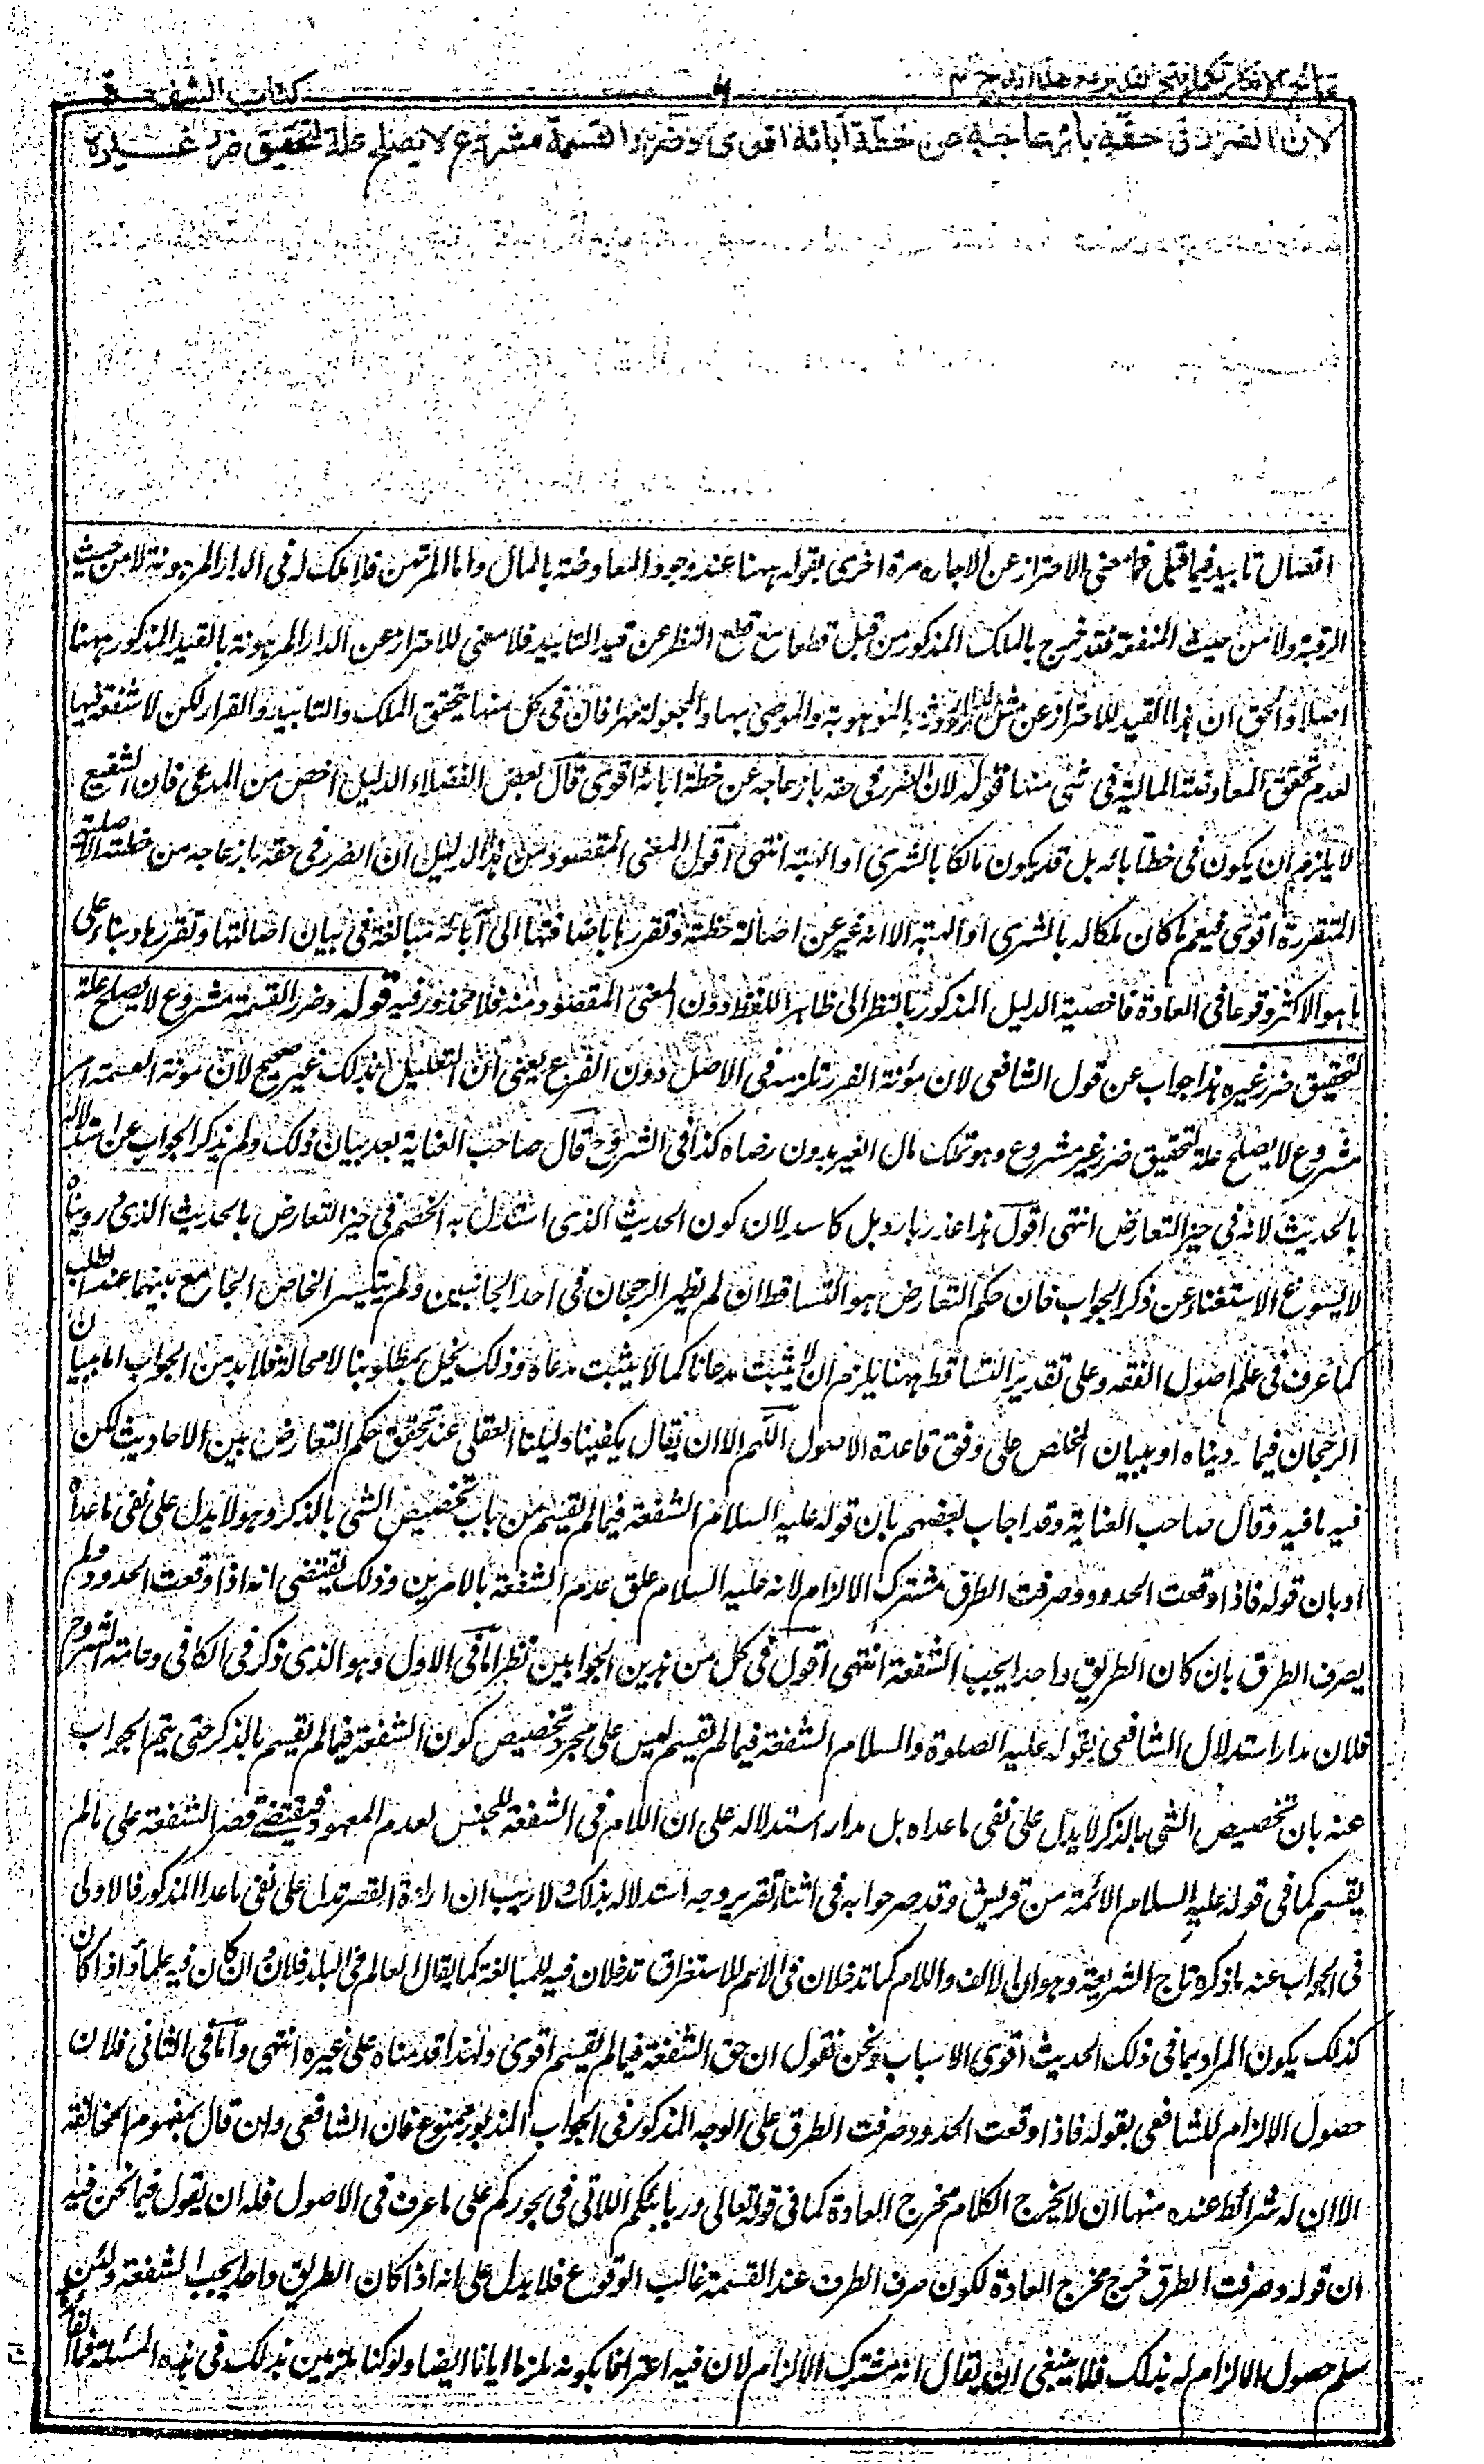 نتائج الافكار تكملة فتح القدير مع هداية ج ٤
٤
كتاب الشفعة
لان الضرر فى حقه بازعاجه عن خطة آبائه اقوى وضرر القسمة مشروع لا يصلح علة لتحقيق ضرر غيره
اتصال تابيد فيما قبل فما معنى الاحتراز عن الاجارة مرة اخرى بقوله ههنا عند وجود المعاوضة بالمال واما المرتهن فلا ملك له فى الدار المرهونة لا من حيث
الرقبة ولا من حيث المنفعة فقد خرج بالملك المذكور من قبل قطعا مع قطع النظر عن قيد التابيد فلا معنى للاحتراز عن الدار المرهونة بالقيد المذكور ههنا
اصلا والحق ان هذا القيد للاحتراز عن مثل الدار الموروثة والموهوبة والموصى بها والمجعولة مهرا فان فى كل منها يتحقق الملك والتابيد والقرار لكن لا شفعة فيها
لعدم تحقق المعاوضة المالية فى شئ منها قوله لان الضرر فى حقه بازعاجه عن خطة ابائه اقوى قال بعض الفضلاء الدليل اخص من المدعى فان الشفيع
لا يلزم ان يكون فى خطة ابائه بل قد يكون مالكا بالشرى او الهبة انتهى اقول المعنى المقصود من هذا الدليل ان الضرر فى حقه بازعاجه من خطته الاصلية
المتقررة اقوى فيعم ما كان ملكا له بالشرى او الهبة الا انه عبر عن اصالة خطته وتقررها باضافتها الى آبائه مبالغة فى بيان اصالتها وتقررها وبناء على
ما هو الاكثر وقوعا فى العادة فاخصية الدليل المذكور بالنظر الى ظاهر اللفظ دون المعنى المقصود منه فلا محذور فيه قوله وضرر القسمة مشروع لا يصلح علة
لتحقيق ضرر غيره هذا جواب عن قول الشافعى لان مؤنة القسمة تلزمه فى الاصل دون الفرع يعنى ان التعليل بذلك غير صحيح لان مؤنة القسمة امر
مشروع لا يصلح علة لتحقيق ضرر غير مشروع وهو تملك مال الغير بدون رضاه كذا فى الشروح قال صاحب العناية بعد بيان ذلك ولم يذكر الجواب عن استدلاله
بالحديث لانه فى حيز التعارض انتهى اقول هذا عذر بارد بل كاسد لان كون الحديث الذى استدل به الخصم فى حيز التعارض بالحديث الذى رويناه
لا يسوغ الاستغناء عن ذكر الجواب فان حكم التعارض هو التساقط ان لم يظهر الرجحان فى احد الجانبين ولم يتيسر الخاص الجامع بينهما عند الطلب
كما عرف فى علم اصول الفقه وعلى تقدير التساقط ههنا يلزم ان لا يثبت مدعانا كما لا يثبت مدعاه وذلك يخل بمطلوبنا لا محالة فلا بد من الجواب اما ببيان
الرجحان فيما رويناه او ببيان المخلص على وفق قاعدة الاصول اللهم الا ان يقال يكفينا دليلنا العقلى عند تحقق حكم التعارض بين الاحاديث لكن
فيه ما فيه وقال صاحب العناية وقد اجاب بعضهم بان قوله عليه السلام الشفعة فيما لم يقسم من باب تخصيص الشئ بالذكر وهو لا يدل على نفى ما عداه
او بان قوله فاذا وقعت الحدود وصرفت الطرق مشترك الالزام لانه عليه السلام علق عدم الشفعة بالامرين وذلك يقتضى انه اذا وقعت الحدود ولم
يصرف الطرق بان كان الطريق واحدا يجب الشفعة انتهى اقول فى كل من هذين الجوابين نظر اما فى الاول وهو الذى ذكر فى الكافى وعامة الشروح
فلان مدار استدلال الشافعى بقوله عليه الصلوة والسلام الشفعة فيما لم يقسم ليس على مجرد تخصيص كون الشفعة فيما لم يقسم بالذكر حتى يتم الجواب
عنه بان تخصيص الشئ بالذكر لا يدل على نفى ما عداه بل مدار استدلاله على ان اللام فى الشفعة للجنس لعدم المعهود فيقتضى قصر الشفعة على ما لم
يقسم كما فى قوله عليه السلام الائمة من قريش وقد صرحوا به فى اثناء تقرير وجه استدلاله بذلك ولا ريب ان اراءة القصر تدل على نفى ما عدا المذكور فالاولى
فى الجواب عنه ما ذكره تاج الشريعة وهو ان الالف واللام كما تدخلان فى الاسم للاستغراق تدخلان فيه للمبالغة كما يقال العالم فى البلد فلان وان كان فيه علماء واذا كان
كذلك يكون المراد بما فى ذلك الحديث اقوى الاسباب ونحن نقول ان حق الشفعة فيما لم يقسم اقوى ولهذا قدمناه على غيره انتهى واما فى الثانى فلان
حصول الالزام للشافعى بقوله فاذا وقعت الحدود وصرفت الطرق على الوجه المذكور فى الجواب المذبور ممنوع فان الشافعى وان قال بمفهوم المخالفة
الا ان له شرائط عنده منها ان لا يخرج الكلام مخرج العادة كما فى قوله تعالى وربائبكم اللاتى فى حجوركم على ما عرف فى الاصول فله ان يقول فيما نحن فيه
ان قوله وصرفت الطرق خرج مخرج العادة لكون صرف الطرق عند القسمة غالب الوقوع فلا يدل على انه اذا كان الطريق واحدا يجب الشفعة ولئن
سلم حصول الالزام له بذلك فلا ينبغى ان يقال انه مشترك الالزام لان فيه اعترافا بكونه ملزما ايانا ايضا ولو كنا ملزمين بذلك فى هذه المسئلة فما